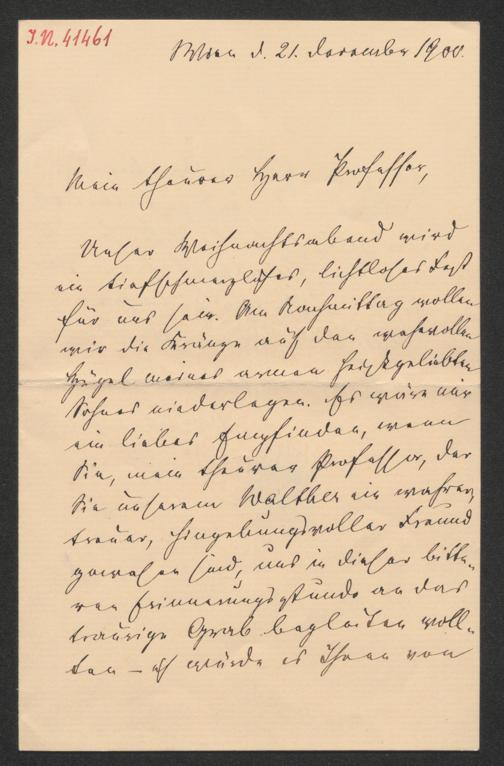 J.N. 41461
Wien d. 21. December 1900.
Mein theurer Herr Professor,
Unser Weihnachtsabend wird
ein tiefschmerzliches, lichtloses Fest
für uns sein. Am Nachmittag wollen
wir die Kränze auf den wehevollen
Hügel meines armen heißgeliebten
Sohnes niederlegen. Es wäre mir
ein liebes Empfinden, wenn
Sie, mein theurer Professor, der
Sie unserem Walther ein wahrer,
treuer, hingebungsvoller Freund
gewesen sind, uns in dieser bitte-
ren Erinnerungsstunde an das
traurige Grab begleiten woll-
ten – ich würde es Ihnen von